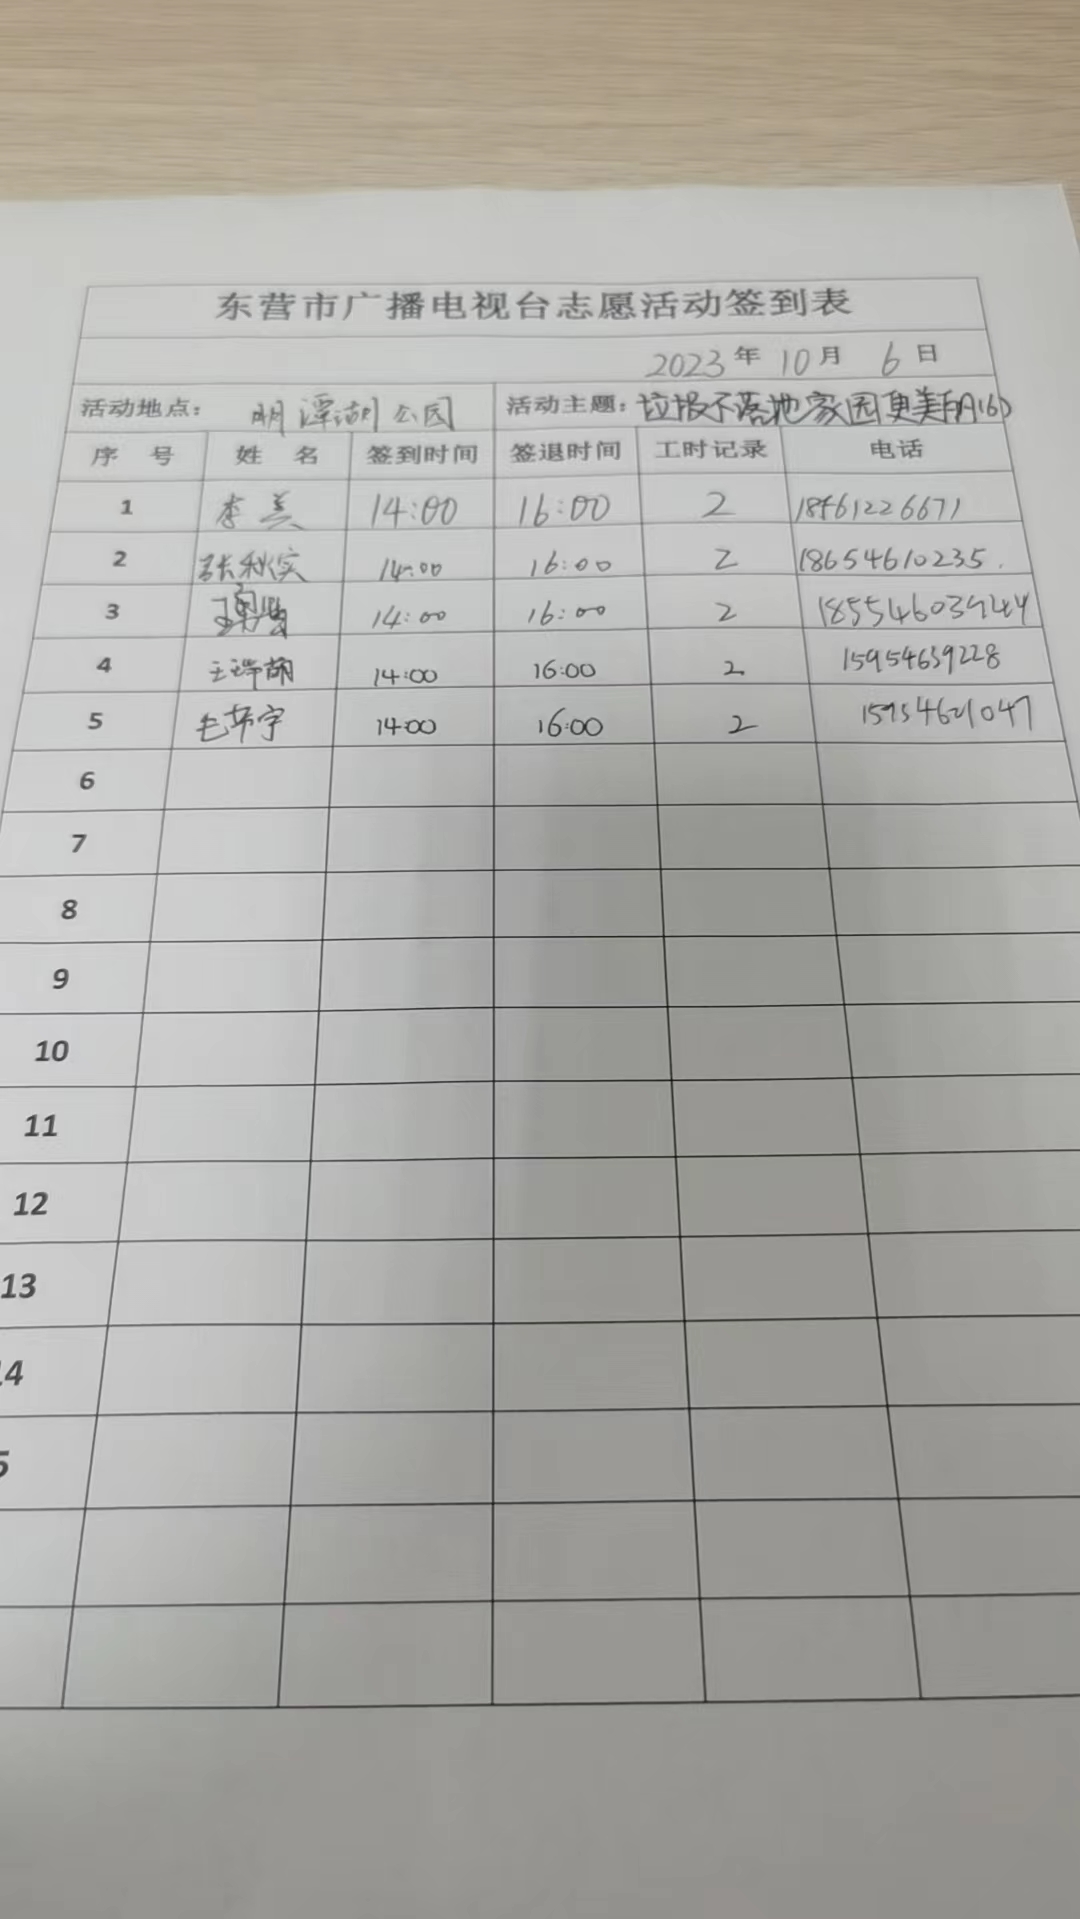 东营市广播电视台志愿活动签到表
2023 年 10 月 6 日
活动地点： 明潭湖公园 活动主题：垃圾不落地家园更美丽(6)
序 号 姓 名 签到时间 签退时间 工时记录 电话
1 李美 14:00 16:00 2 18561226671
2 张秋实 14:00 16:00 2 18654610235.
3 14:00 16:00 2
4 王瑞 14:00 16:00 2 15954639228
5 毛 宇 14:00 16:00 2
6
7
8
9
10
11
12
13